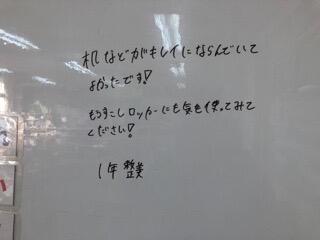 机などがキレイにならんでいて
よかったです!
もうすこしロッカーにも気を使ってみて
ください!
1年 整美